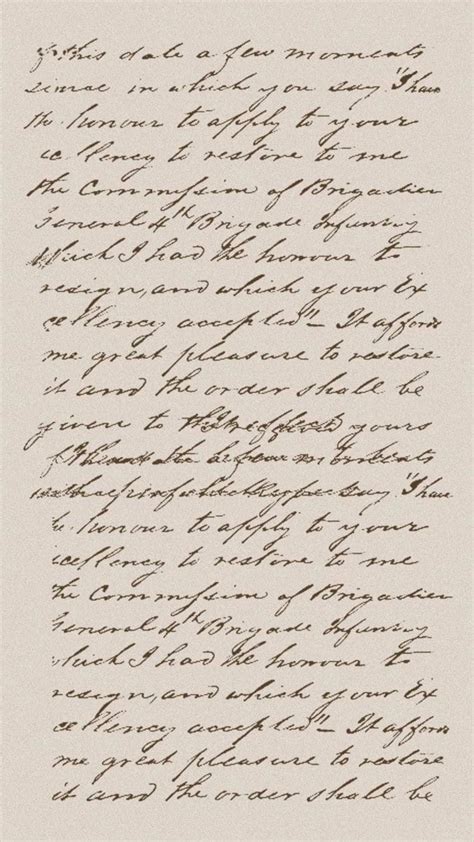 of this date a few moments
since in which you say "I have
the honour to apply to your
excellency to restore to me
the Commission of Brigadier
General 4th Brigade Infantry
which I had the honour to
resign, and which your Ex
cellency accepted" – It affords
me great pleasure to restore
it and the order shall be
given to yours
moments
say "I have
the honour to apply to your
excellency to restore to me
the Commission of Brigadier
General 4th Brigade Infantry
which I had the honour to
resign, and which your Ex
cellency accepted" – It affords
me great pleasure to restore
it and the order shall be